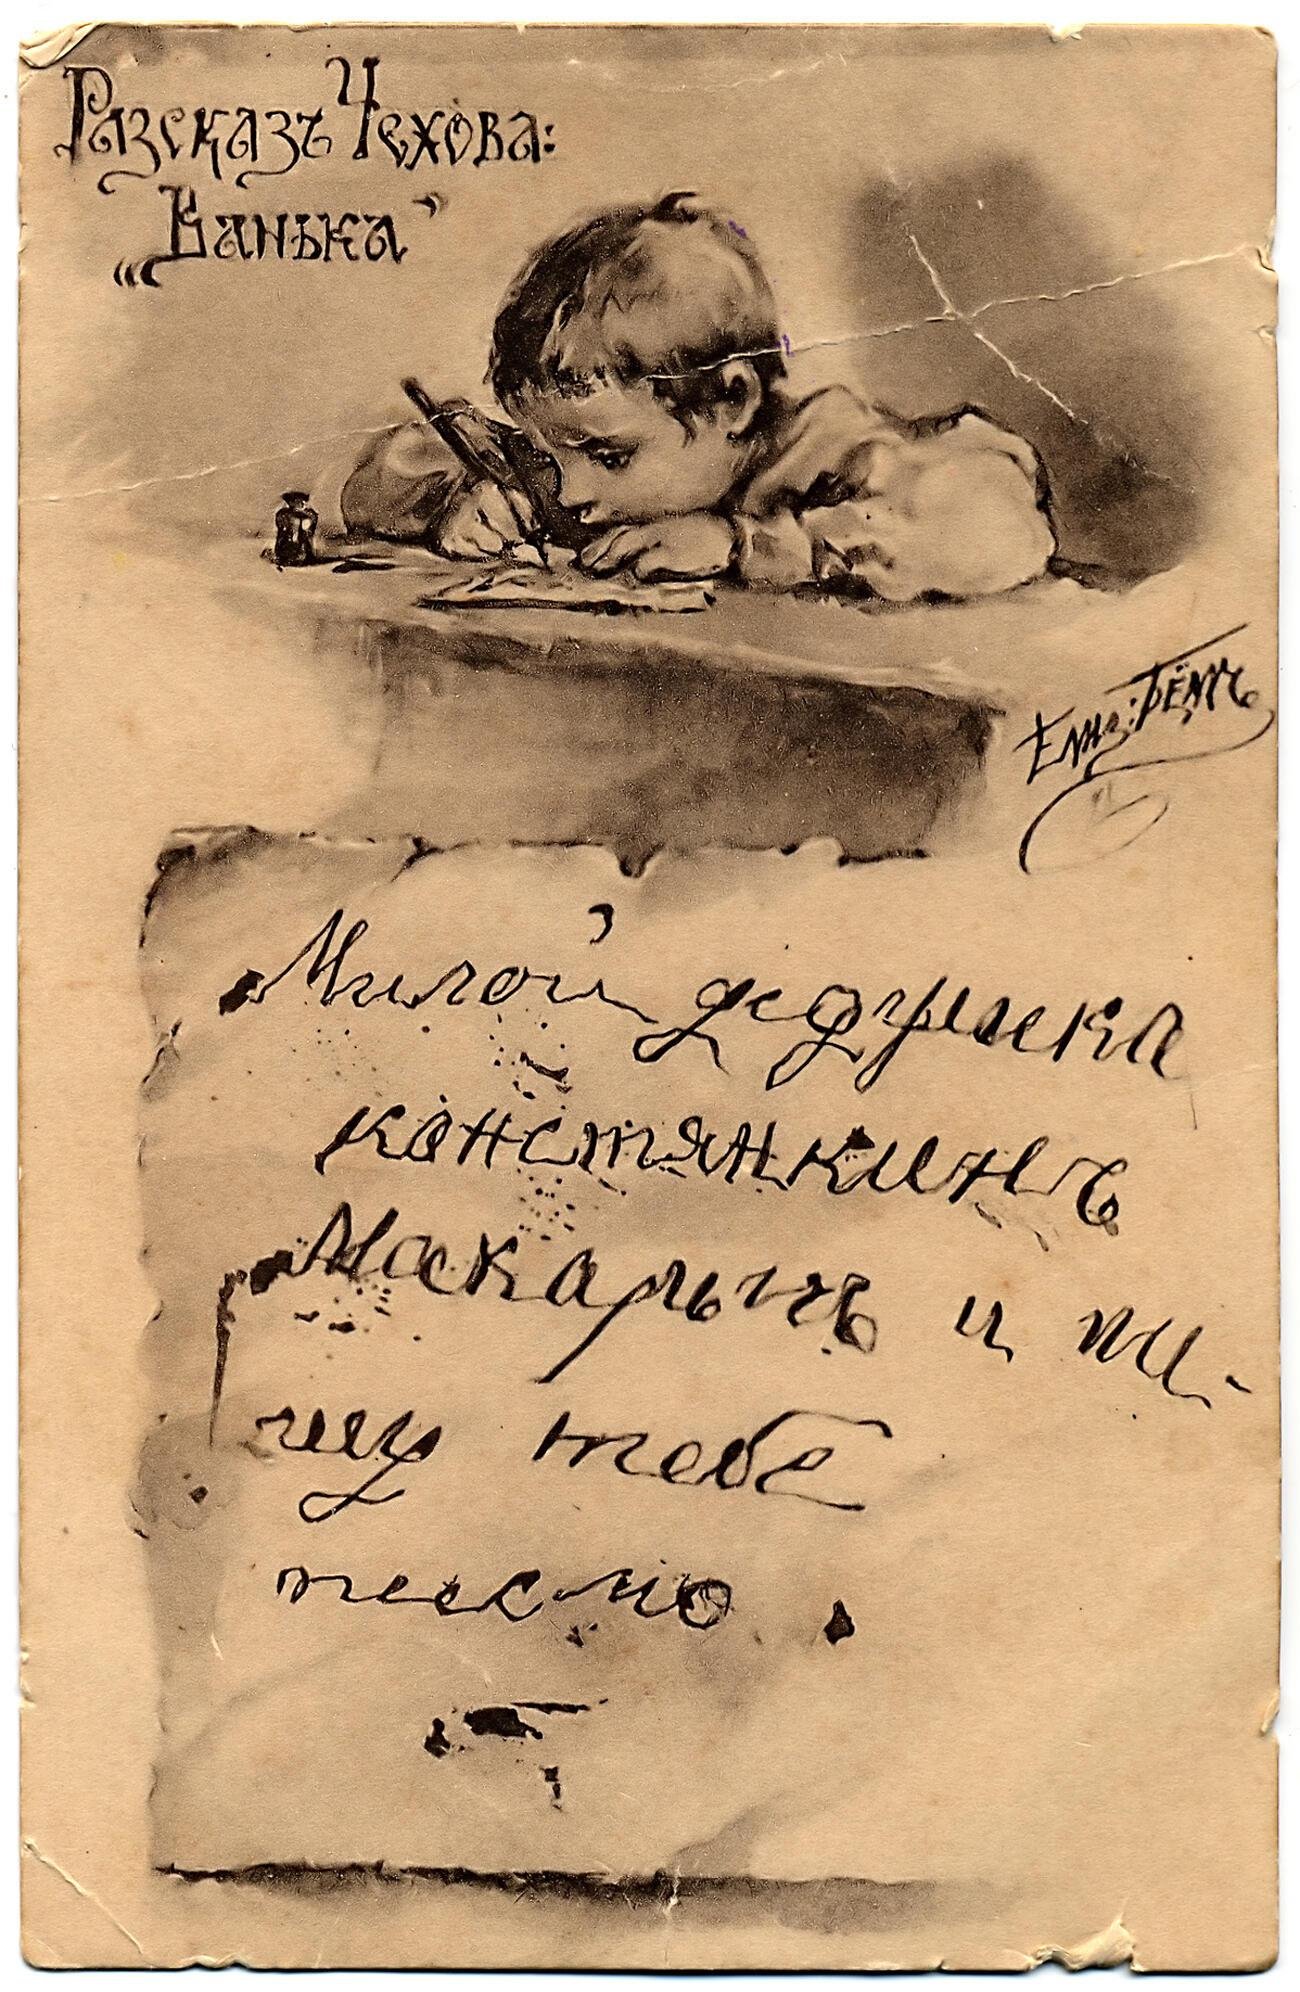 Разсказъ Чехова:
„Ванька"
Елиз: Бёмъ
Милой дедушка
констянкинъ
Макарычъ и пи-
шу тебе
писмо.